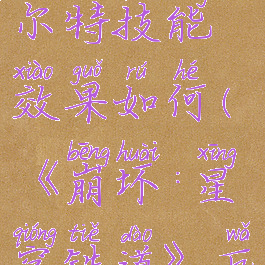 尔特技能
xiào guǒ rú hé
效果如何(
bēng huài xīng
《崩坏:星
qióng tiě dào wǎ
穹铁道》瓦